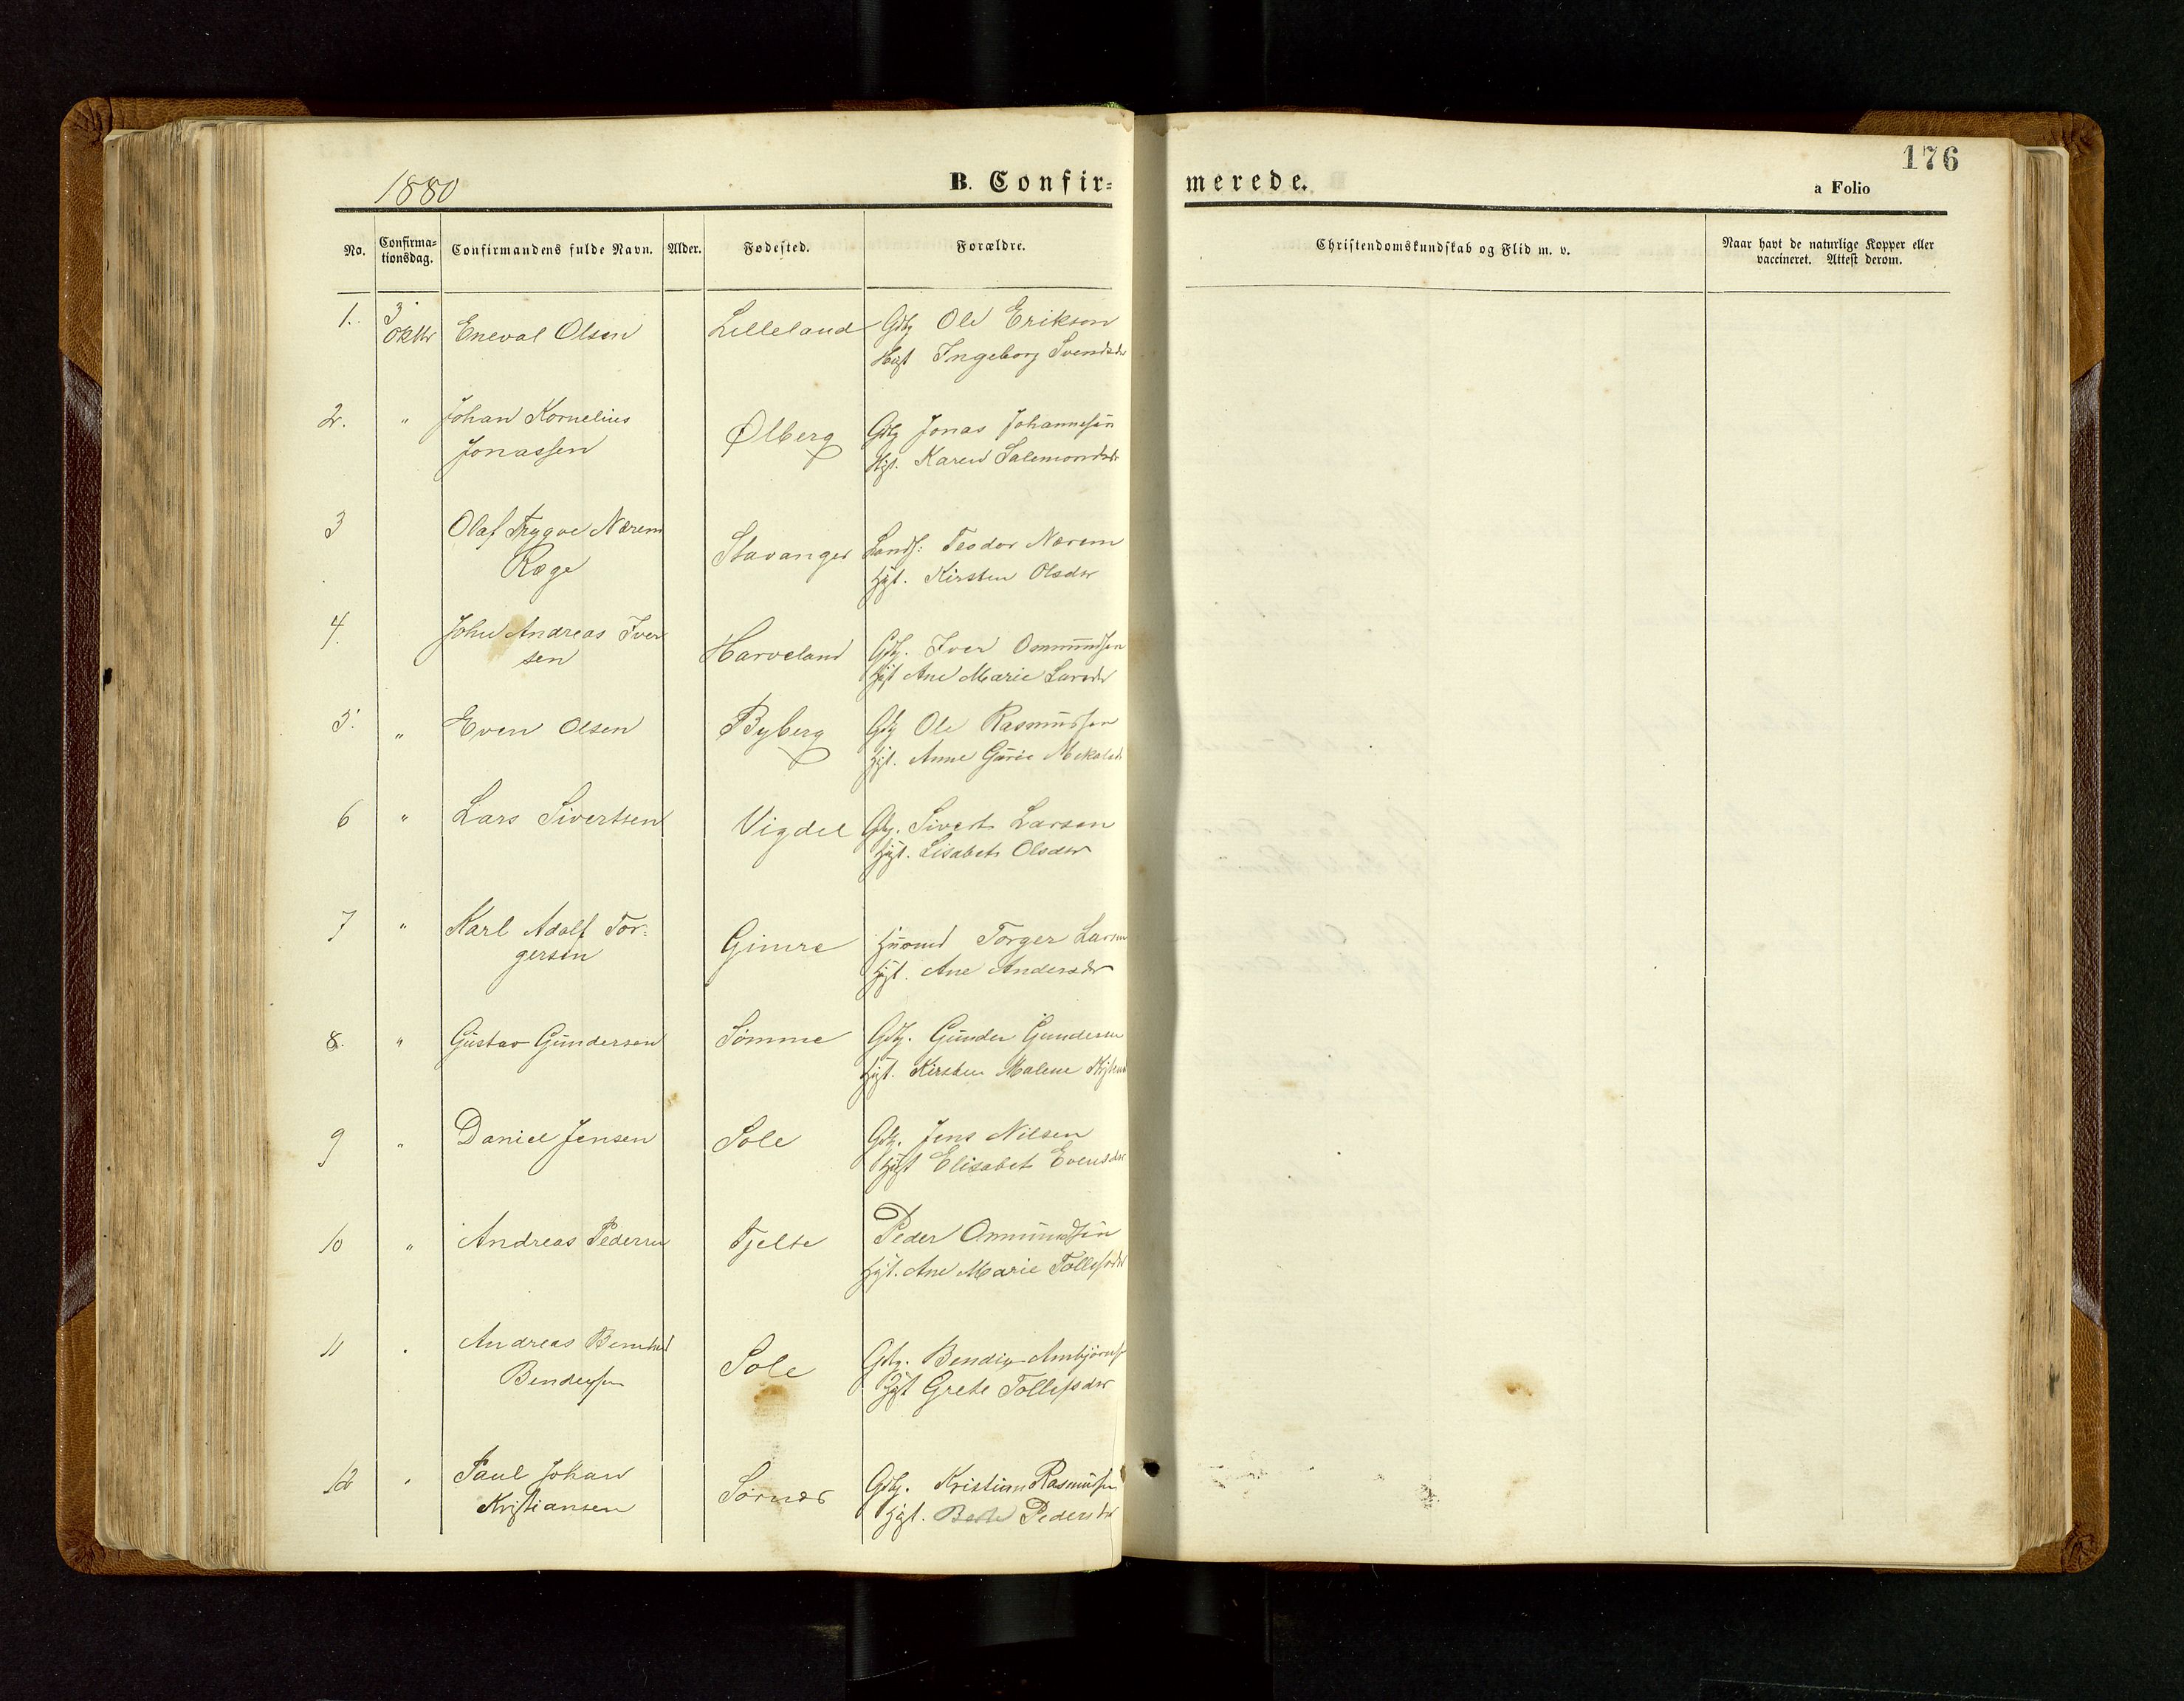 1880
B. Confir=
merede.
176
a Folio
No.
Confirma=
tionsdag.
Confirmandens fulde Navn.
Alder.
Fødested.
Forældre.
Christendomskundskab og Flid m. v.
Naar havt de naturlige Kopper eller
vaccineret. Attest derom.
1. 3 Oktbr Eneval Olsen Lilleland Gdbg Ole Erikson
Hgst Ingeborg Svendsdr
2. " Johan Kornelius
Jonassen Ølberg Gdbg Jonas Johannesen
Hgt. Karen Salemonsdr
3 Olaf Trygve Nærem
Roge Stavanger Landh: Teodor Nærem
Hgt. Kirsten Olsdr
4. John Andreas Iver
sen Harveland Gdbg. Iver Ommundsen
Hgt Ane Marie Larsdr
5. " Even Olsen Byberg Gdbg Ole Rasmussen
Hgt. Anne Gurie
6 " Lars Sivertsen Vigdel Gdbg. Sivert Larsen
Hgt. Lisabet Olsdr
7 " Karl Adolf Tor=
gersen Gimre Husmd Torger Larsen
Hgt. Ane Andersdr
8. " Gustav Gundersen Sømme Gdbg. Gunder Gundersen
Hgt. Kirsten Malene
9 " Daniel Jensen Sole Gdbg. Jens Nilsen
Hgt Elisabet Evensdr
10 " Andreas Pedersen Tjelte Peder Ommundsen
Hgt. Ane Marie Tollefsdr
11 " Andreas
Bendixsen Sole Gdbg. Bendix Ambjørns
Hgt Grete Tollefsdr
12 " Paul Johan
Kristiansen Sørnes Gdbg. Kristian Rasmussen
Hgt. Berte Pedersdr